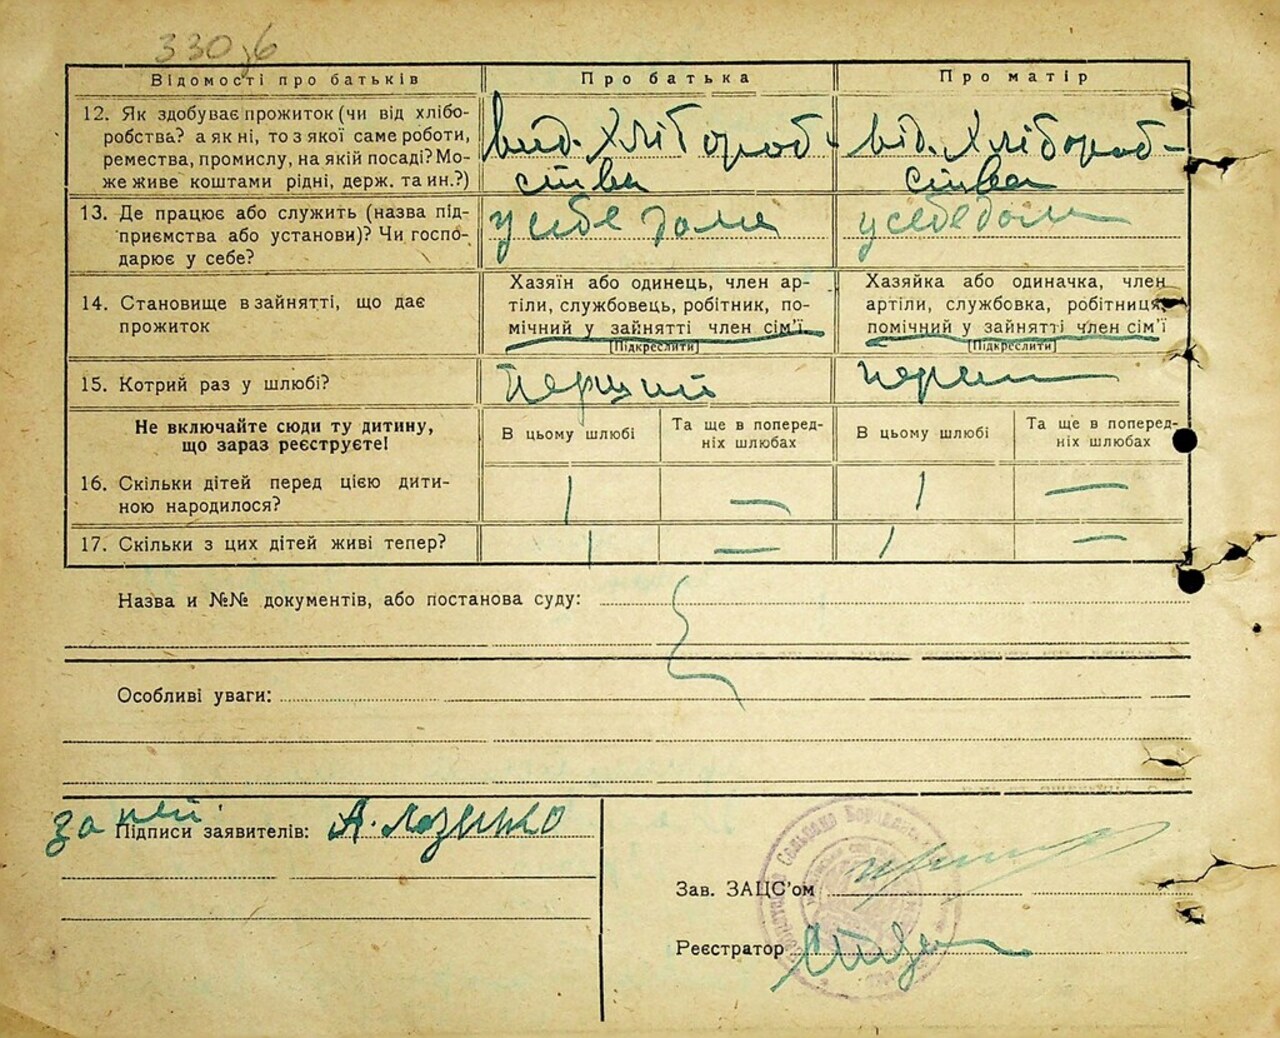 330
Відомості про батьків Про батька Про матір
12. Як здобуває прожиток (чи від хлібо-
робства? а як ні, то з якої саме роботи,
ремества, промислу, на якій посаді? Мо-
же живе коштами рідні, держ. та ин.?)
від. Хлібороб-
ства
від. Хлібороб-
ства
13. Де працює або служить (назва під-
приємства або установи)? Чи госпо-
дарює у себе?
у себе дома
у себе дом
14. Становище в зайнятті, що дає
прожиток
Хазяїн або одинець, член ар-
тіли, службовець, робітник, по-
мічний у зайнятті член сім'ї
[Підкреслити]
Хазяйка або одиначка, член
артіли, службовка, робітниця,
помічний у зайнятті член сім'ї
[Підкреслити]
15. Котрий раз у шлюбі?
Перший
перш
Не включайте сюди ту дитину,
що зараз реєструєте!
В цьому шлюбі
Та ще в поперед-
ніх шлюбах
В цьому шлюбі
Та ще в поперед-
ніх шлюбах
16. Скільки дітей перед цією дити-
ною народилося?
1 — 1 —
17. Скільки з цих дітей живі тепер?
1 — 1 —
Назва и №№ документів, або постанова суду:
Особливі уваги:
за неї
Підписи заявителів: А. Лазенко
Зав. ЗАЦС'ом
Реєстратор